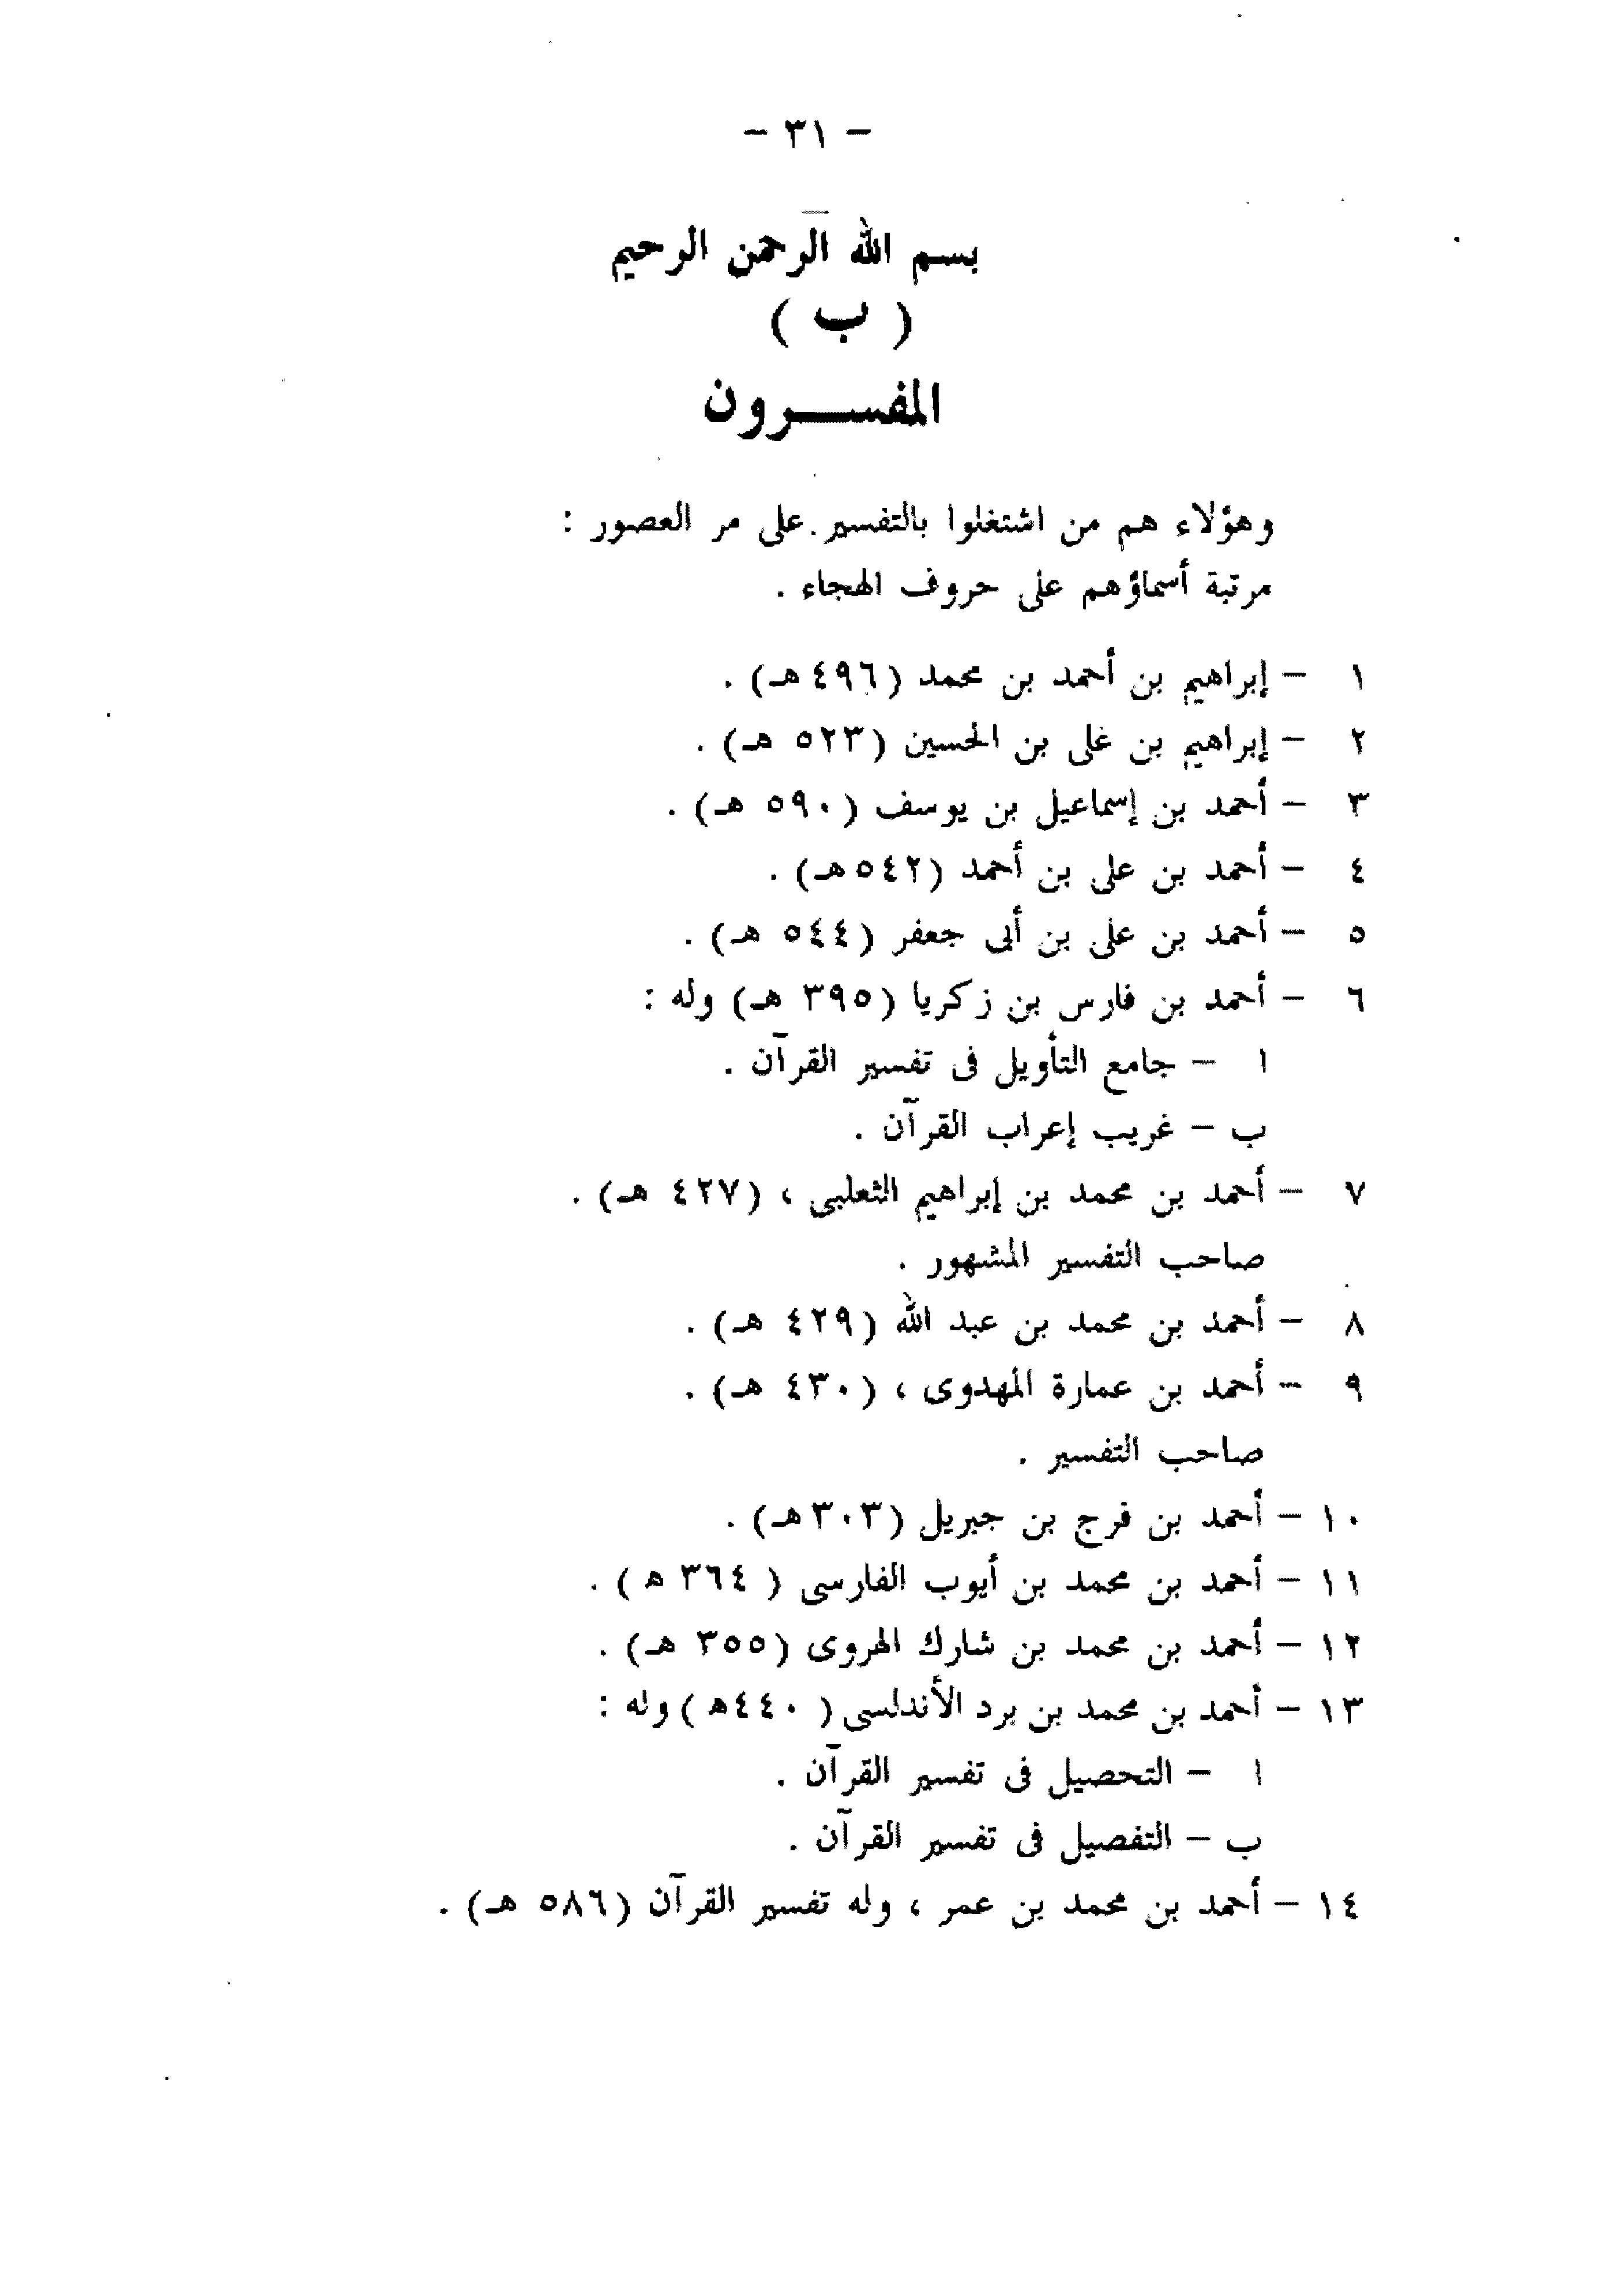 – ٣١ –
بسم الله الرحمن الرحيم
( ب )
المفســرون
وهؤلاء هم من اشتغلوا بالتفسير على مر العصور :
مرتبة أسماؤهم على حروف الهجاء .
١ – إبراهيم بن أحمد بن محمد (٤٩٦ هـ) .
٢ – إبراهيم بن على بن الحسين (٥٢٣ هـ) .
٣ – أحمد بن إسماعيل بن يوسف (٥٩٠ هـ) .
٤ – أحمد بن على بن أحمد (٥٤٢ هـ) .
٥ – أحمد بن على بن أبى جعفر (٥٤٤ هـ) .
٦ – أحمد بن فارس بن زكريا (٣٩٥ هـ) وله :
ا – جامع التأويل فى تفسير القرآن .
ب – غريب إعراب القرآن .
٧ – أحمد بن محمد بن إبراهيم الثعلبى ، (٤٢٧ هـ) .
صاحب التفسير المشهور .
٨ – أحمد بن محمد بن عبد الله (٤٢٩ هـ) .
٩ – أحمد بن عمارة المهدوى ، (٤٣٠ هـ) .
صاحب التفسير .
١٠ – أحمد بن فرج بن جبريل (٣٠٣ هـ) .
١١ – أحمد بن محمد بن أيوب الفارسى ( ٣٦٤ ه ) .
١٢ – أحمد بن محمد بن شارك الهروى (٣٥٥ هـ) .
١٣ – أحمد بن محمد بن برد الأندلسى ( ٤٤٠ه ) وله :
ا – التحصيل فى تفسير القرآن .
ب – التفصيل فى تفسير القرآن .
١٤ – أحمد بن محمد بن عمر ، وله تفسير القرآن (٥٨٦ هـ) .